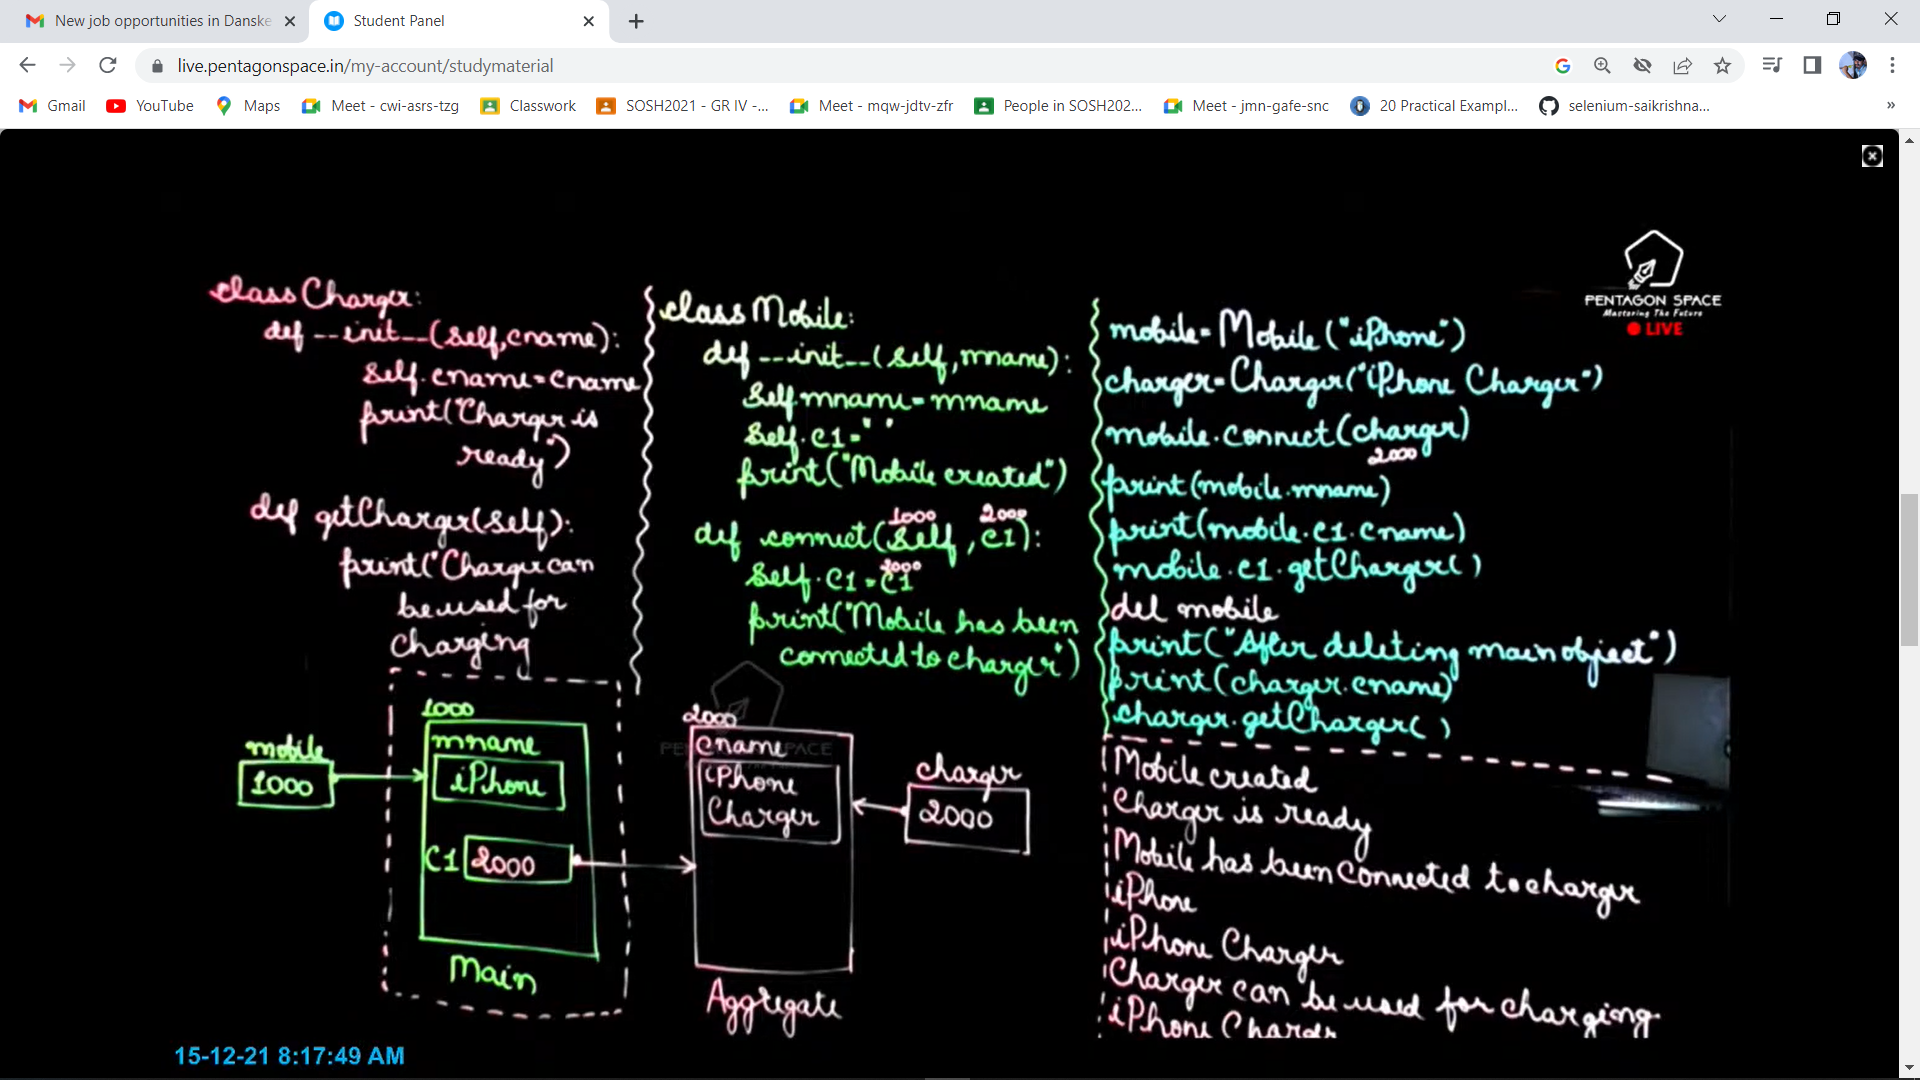 New job opportunities in Danske
Student Panel
live.pentagonspace.in/my-account/studymaterial
Gmail
YouTube
Maps
Meet - cwi-asrs-tzg
Classwork
SOSH2021 - GR IV -...
Meet - mqw-jdtv-zfr
People in SOSH202...
Meet - jmn-gafe-snc
20 Practical Exampl...
selenium-saikrishna...
»
PENTAGON SPACE
Mastering The Future
LIVE
class Charger:
def __init__(self,cname):
self.cname=cname
print("Charger is
ready")
def getCharger(self):
print("Charger can
be used for
charging
class Mobile:
def __init__(self,mname):
self.mname=mname
self.c1=" "
print("Mobile created")
1000 2000
def connect(self,c1):
2000
self.c1=c1
print("Mobile has been
connected to charger")
mobile=Mobile("iPhone")
charger=Charger("iPhone Charger")
mobile.connect(charger)
2000
print(mobile.mname)
print(mobile.c1.cname)
mobile.c1.getCharger()
del mobile
print("After deleting main object")
print(charger.cname)
charger.getCharger()
mobile
1000
1000
mname
iPhone
C1 2000
Main
2000
cname
iPhone
Charger
Aggregate
charger
2000
Mobile created
Charger is ready
Mobile has been connected to charger
iPhone
iPhone Charger
Charger can be used for charging
15-12-21 8:17:49 AM